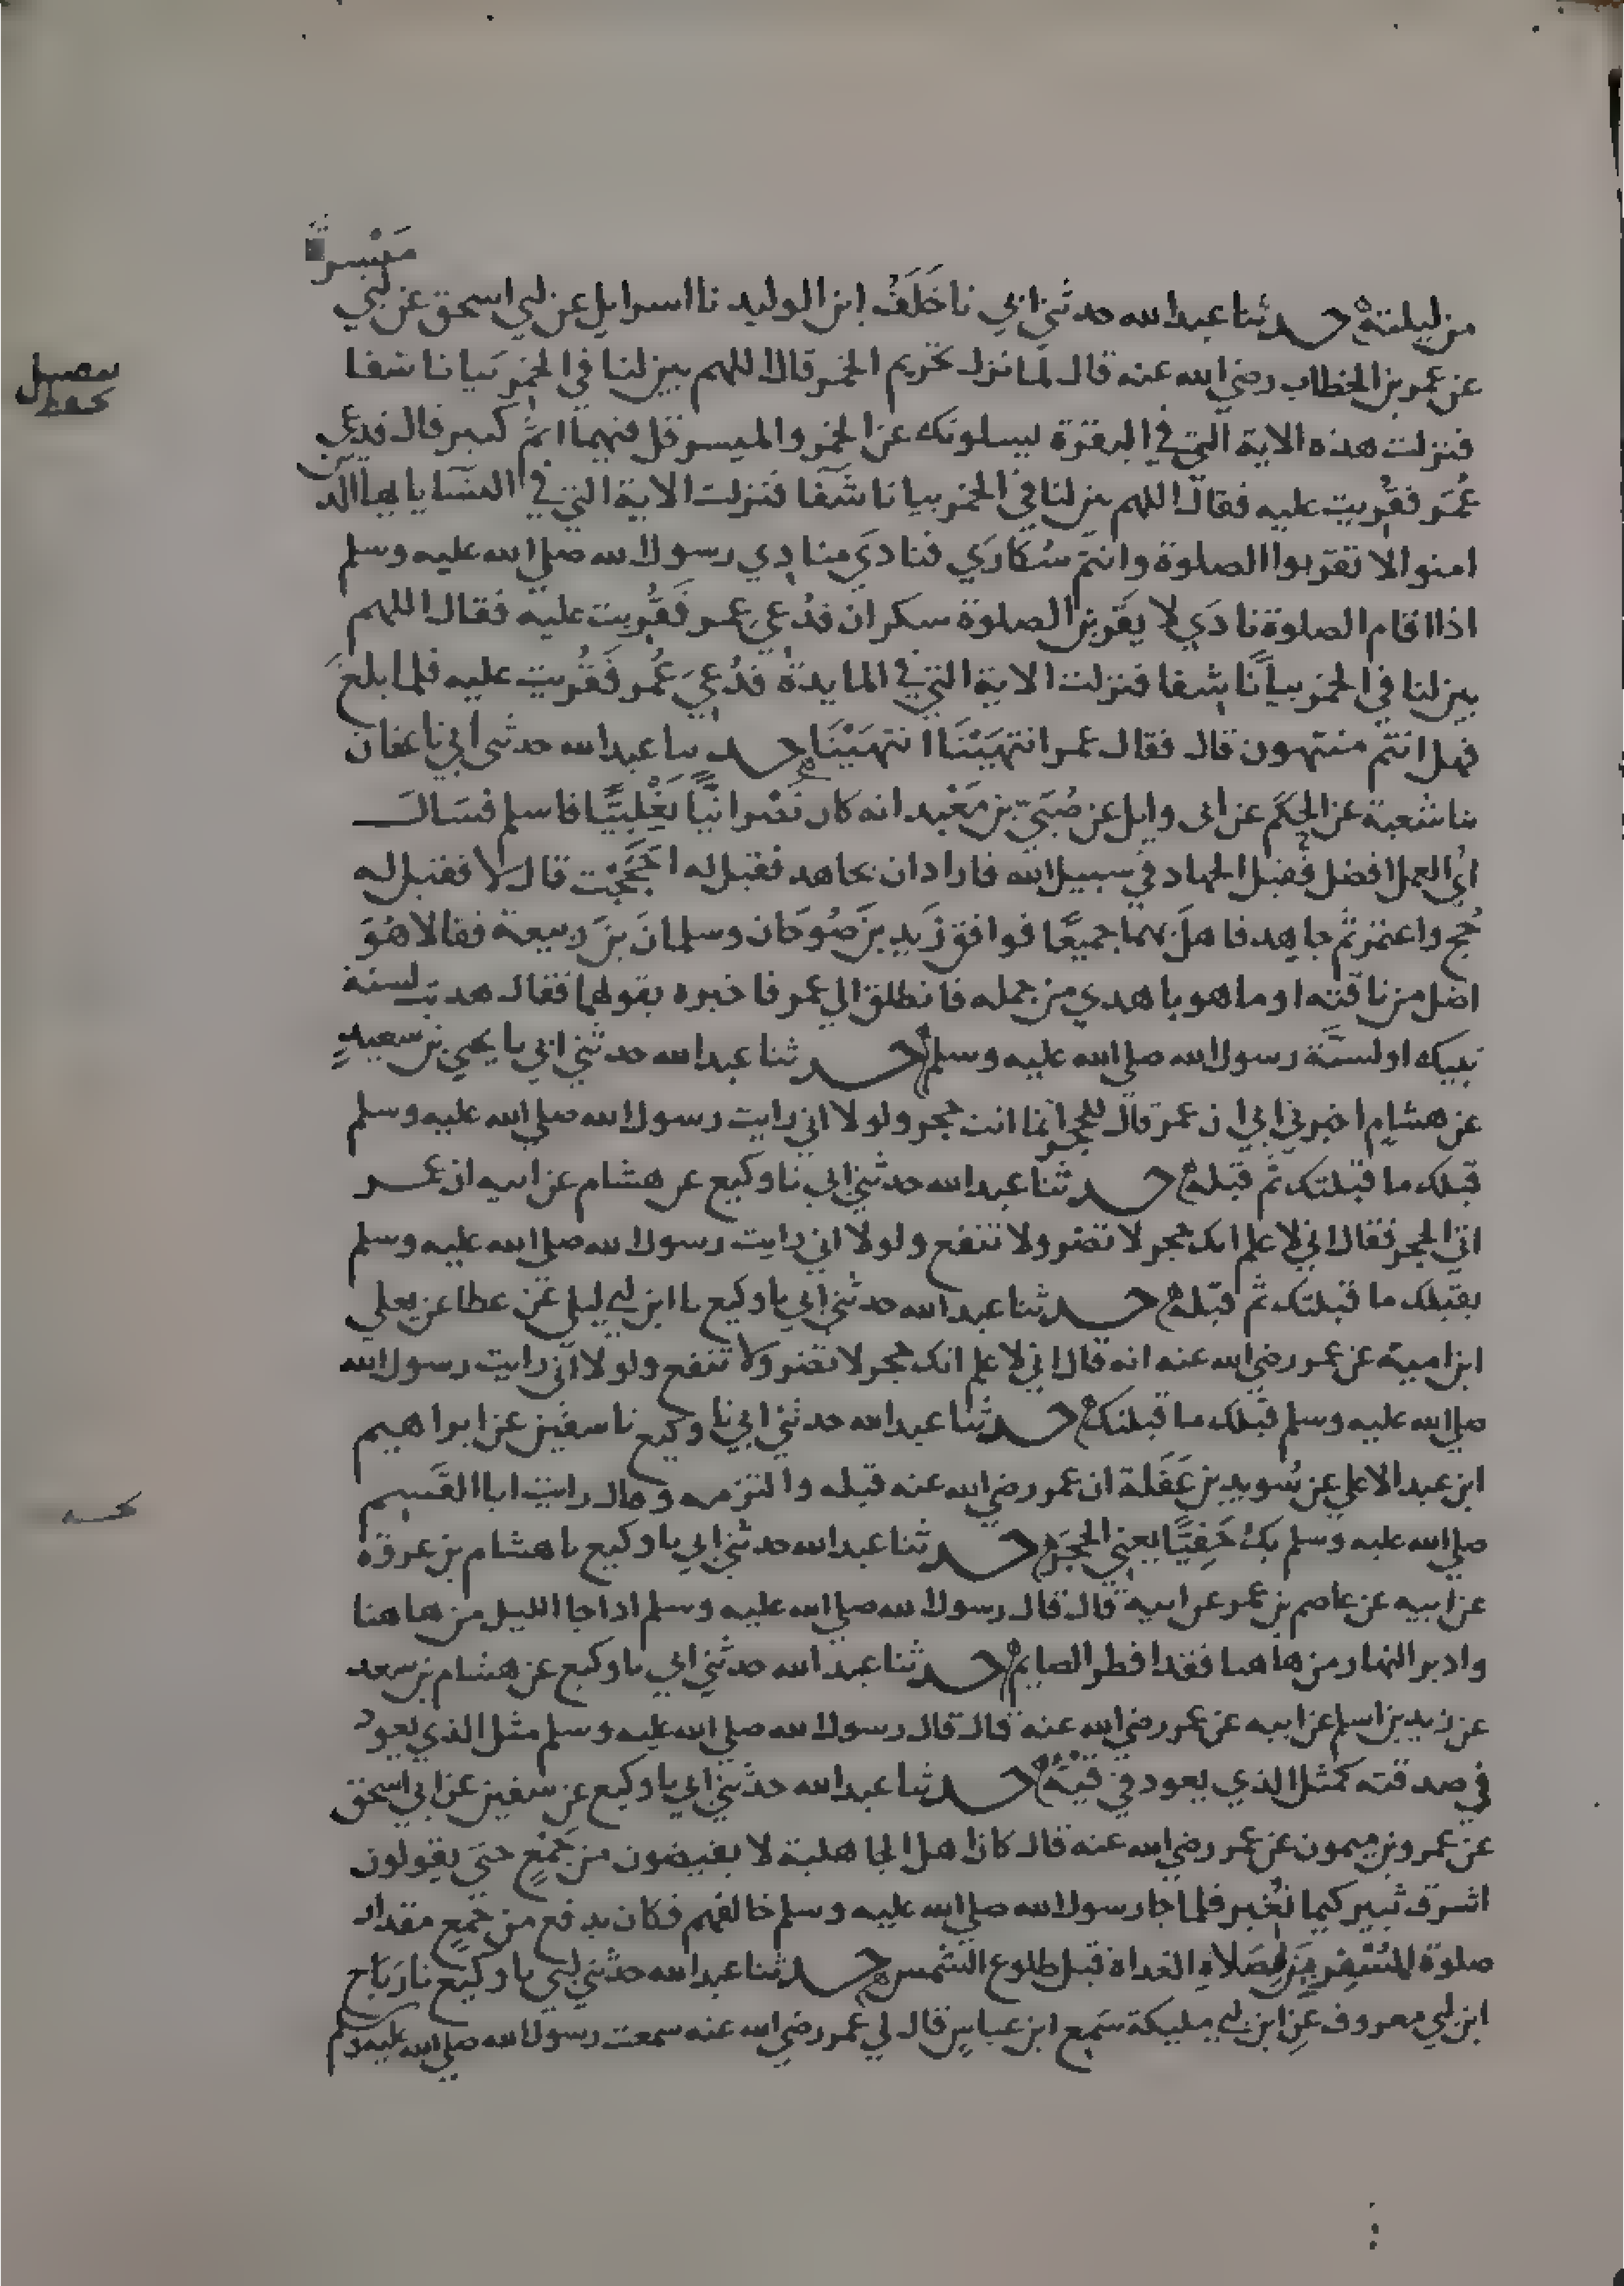 ميسرة
من ليلته حدثنا عبد الله حدثني ابي نا خَلَفُ ابن الوليد نا اسرايل عن ابي اسحق عن ابي
عن عمر بن الخطاب رضي الله عنه قال لما نزل تحريم الخمر قال اللهم بين لنا في الخمر بيانا شفا
فنزلت هذه الاية التي في البقرة يسلونك عن الخمر والميسر قل فيهما اثم كبير قال فدعي
عُمَر فقُريت عليه فقال اللهم بين لنا في الخمر بيانا شفا فنزلت الاية التي في النسا يا يها الذين
امنوا لا تقربوا الصلوة وانتم سُكَارَي فنادي منادي رسول الله صلي الله عليه وسلم
اذا اقام الصلوة نادَي لا يقربن الصلوة سكران فدُعي عمر فَقُرِيت عليه فقال اللهم
بين لنا في الخمر بيانًا شفا فنزلت الاية التي في المايدة فدُعيَ عُمر فَقُرِيت عليه فلما بلغَ
فهل انتم منتهون قال فقال عمر انتهَيْنَا انتهَيْنَا حدثنا عبد الله حدثني ابي نا عفان
نا شعبة عن الحكم عن ابي وايل عن صُبَيّ بن مَعْبد انه كان نصْرانيًّا تَغْلِبيًّا فاسلم فسَال
اي العمل افضل فقيل الجهاد في سبيل الله فاراد ان يجاهد فقيل له احَجَجْت قال لا فقيل له
حُج واعتمر ثم جاهد فاهلَ بهما جميعًا فوافق زَيد بنَ صُوحَان وسلمانَ بنَ ربيعة فقالا هُوَ
اضل من ناقته او ما هو باهدي من جمله فانطلق الي عمر فاخبره بقولهما فقال هديت لسنة
نبيك او لسنَّة رسول الله صلي الله عليه وسلم حدثنا عبد الله حدثني ابي نا يحيي بن سعيدٍ
عن هشام اخبرني ابي ان عمر قال للحجر انما انت حجر ولولا اني رايت رسول الله صلي الله عليه وسلم
قبلك ما قبلتك ثم قبله حدثنا عبد الله حدثني ابي نا وكيع عن هشام عن ابيه ان عمر
اتي الحجر فقال اني لاعلم انك حجر لا تضر ولا تنفع ولولا اني رايت رسول الله صلي الله عليه وسلم
يقبلك ما قبلتك ثم قبله حدثنا عبد الله حدثني ابي نا وكيع نا ابن ابي ليلي عن عطا عن يعلي
ابن امية عن عمر رضي الله عنه انه قال اني لاعلم انك حجر لا تضر ولا تنفع ولولا اني رايت رسول الله
صلي الله عليه وسلم قبلك ما قبلتك حدثنا عبد الله حدثني ابي نا وكيع نا سفين عن ابراهيم
ابن عبد الاعلي عن سُويد بن غَفَلة ان عمر رضي الله عنه قبله والتزمه وقال رايت ابا القسم
صلي الله عليه وسلم بكَ حَفِيًّا يعني الحجَر حدثنا عبد الله حدثني ابي نا وكيع نا هشام بن عروة
عن ابيه عن عاصم بن عمر عن ابيه قال قال رسول الله صلي الله عليه وسلم اذا جا الليل من هاهنا
وادبر النهار من هاهنا فقد افطر الصايم حدثنا عبد الله حدثني ابي نا وكيع عن هشام بن سعد
عن زيد بن اسلم عن ابيه عن عمر رضي الله عنه قال قال رسول الله صلي الله عليه وسلم مثل الذي يعود
في صدقته كمثل الذي يعود في قيئه حدثنا عبد الله حدثني ابي نا وكيع عن سفين عن ابي اسحق
عن عمرو بن ميمون عن عمر رضي الله عنه قال كان اهل الجاهلية لا يفيضون من جَمْعٍ حتي يقولون
اشرق ثبير كيما نُغير فلما جا رسول الله صلي الله عليه وسلم خالفهم فكان يدفع من جمعٍ مقدار
صلوة المُسْفِرين لِصَلاةِ الغداة قبل طلوع الشمس حدثنا عبد الله حدثني ابي نا وكيع نا رَبَاح
ابن ابي معروف عن ابن ابي مليكة سَمِع ابن عباس قال لي عمر رضي الله عنه سمعت رسول الله صلي الله عليه وسلم